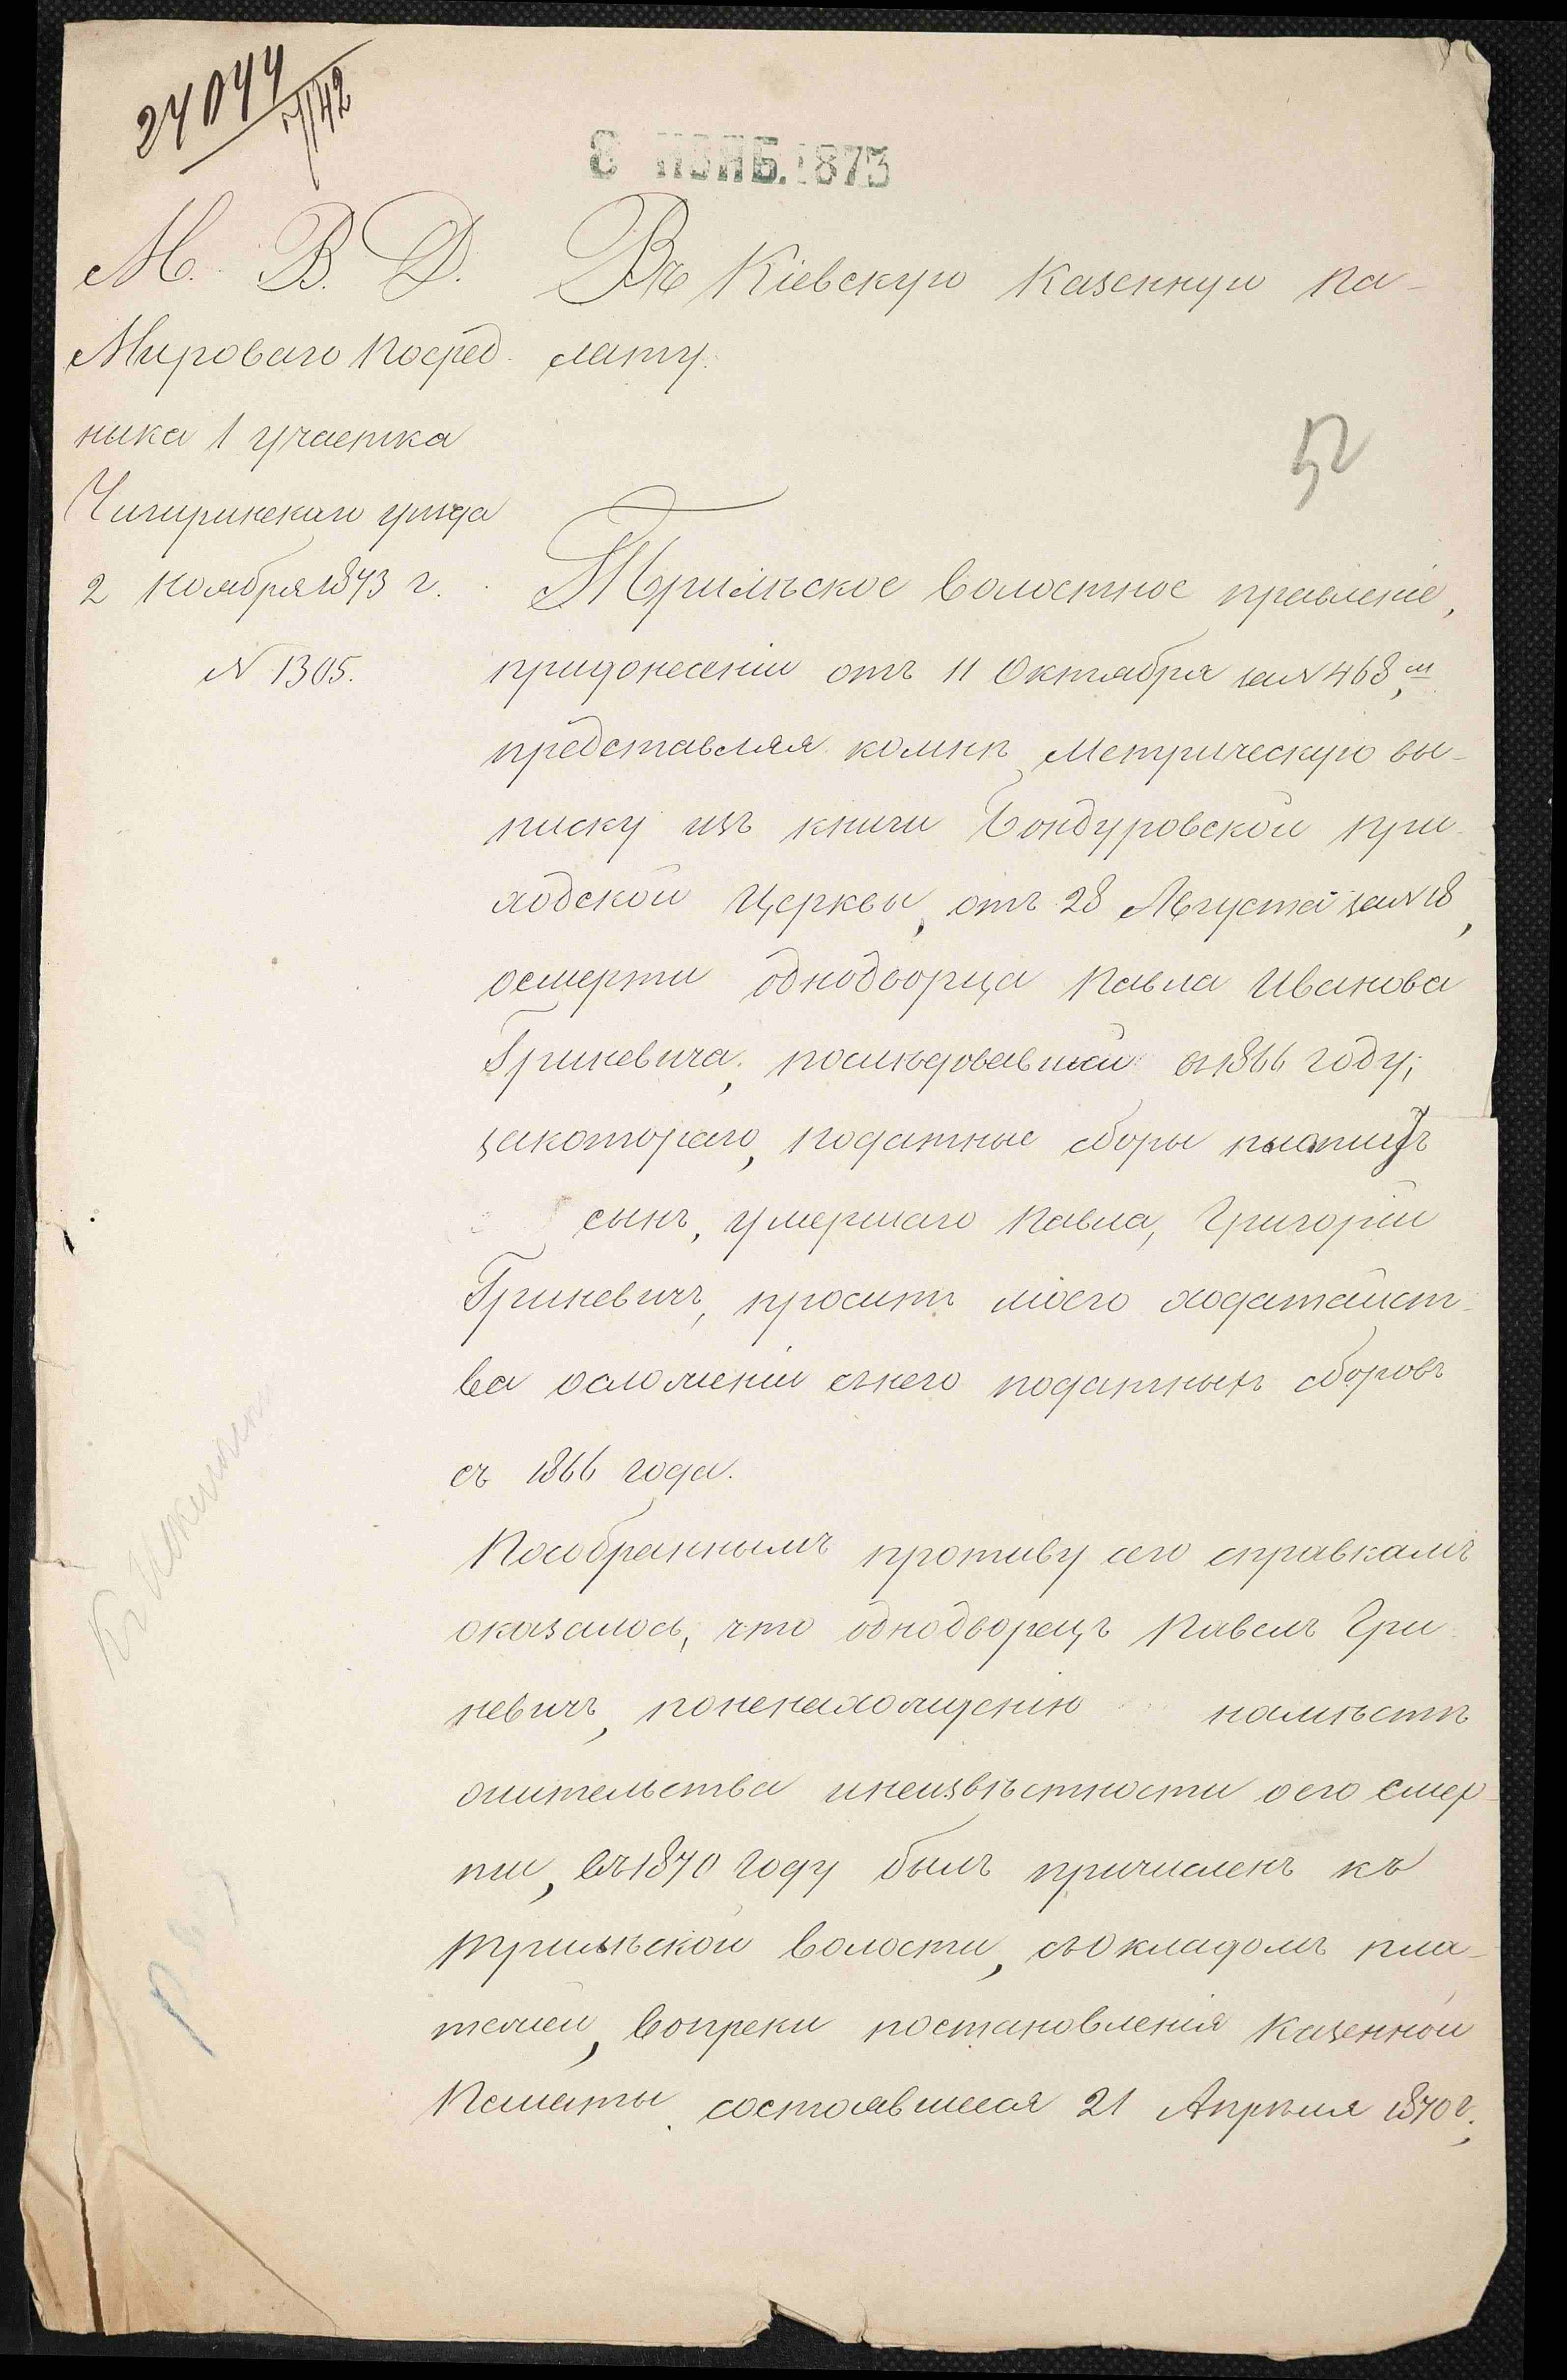 24044
8 НОЯБ. 1873
М. В. Д.
Мироваго Посред-
ника 1 участка
Чигиринскаго уѣзда
2 Ноября 1873 г.
N 1305.
Въ Кіевскую Казенную Па-
лату.
52
Трилѣское волостное правленіе,
придонесеніи отъ 11 Октября заN 468,
представляя комнѣ Метрическую вы-
писку изъ книги Бондуровской при-
ходской Церквы, отъ 28 Августа заN 18,
осмерти однодворца Павла Иванова
Гриневича, послѣдовавшей въ 1866 году;
закотораго, податные сборы платитъ
сынъ, умершаго Павла, Григорій
Гриневичъ, проситъ моего ходатайст-
ва осложеніи снего податныхъ сборовъ
съ 1866 года.
Пособраннымъ противу сего справкамъ
оказалось, что однодворецъ Павелъ Гри-
невичъ, поненахожденію намѣстѣ
жительства инеизвѣстности оего смер-
ти, въ 1870 году былъ причисленъ къ
трилѣской волости, съокладомъ пла-
тежей, вопреки постановленія Казенной
Палаты состоявшееся 21 Апрѣля 1870 г.,